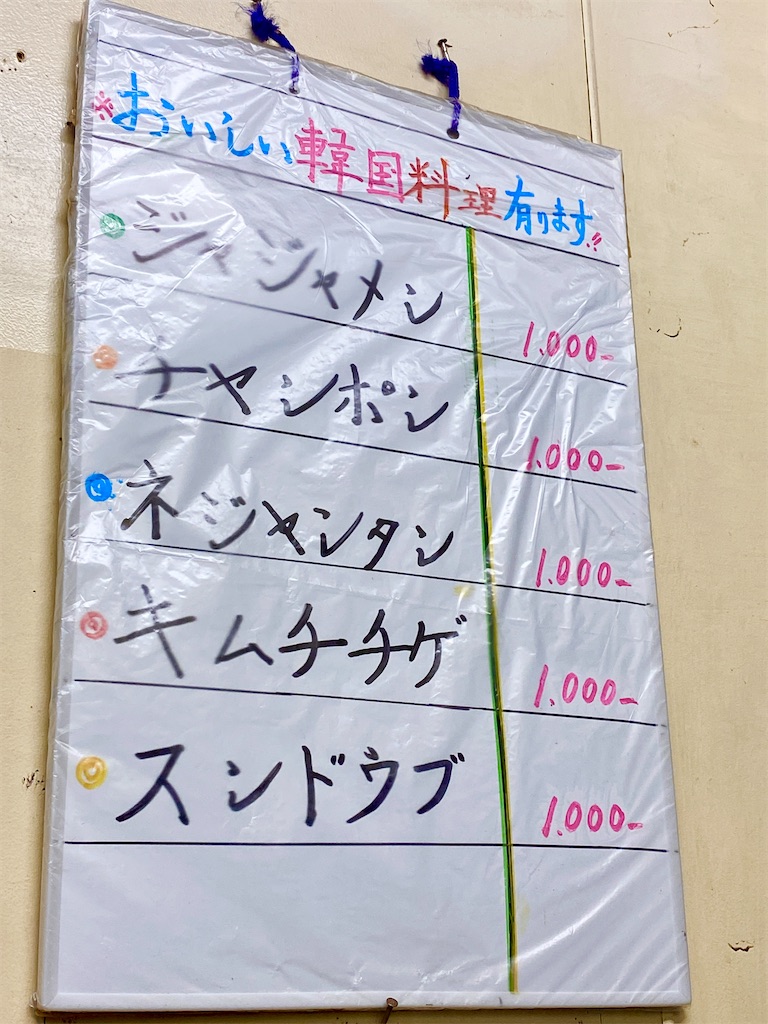 ※おいしい韓国料理有ります!!
ジャジャメン 1.000-
チャンポン 1.000-
ネジャンタン 1.000-
キムチチゲ 1.000-
スンドゥブ 1.000-